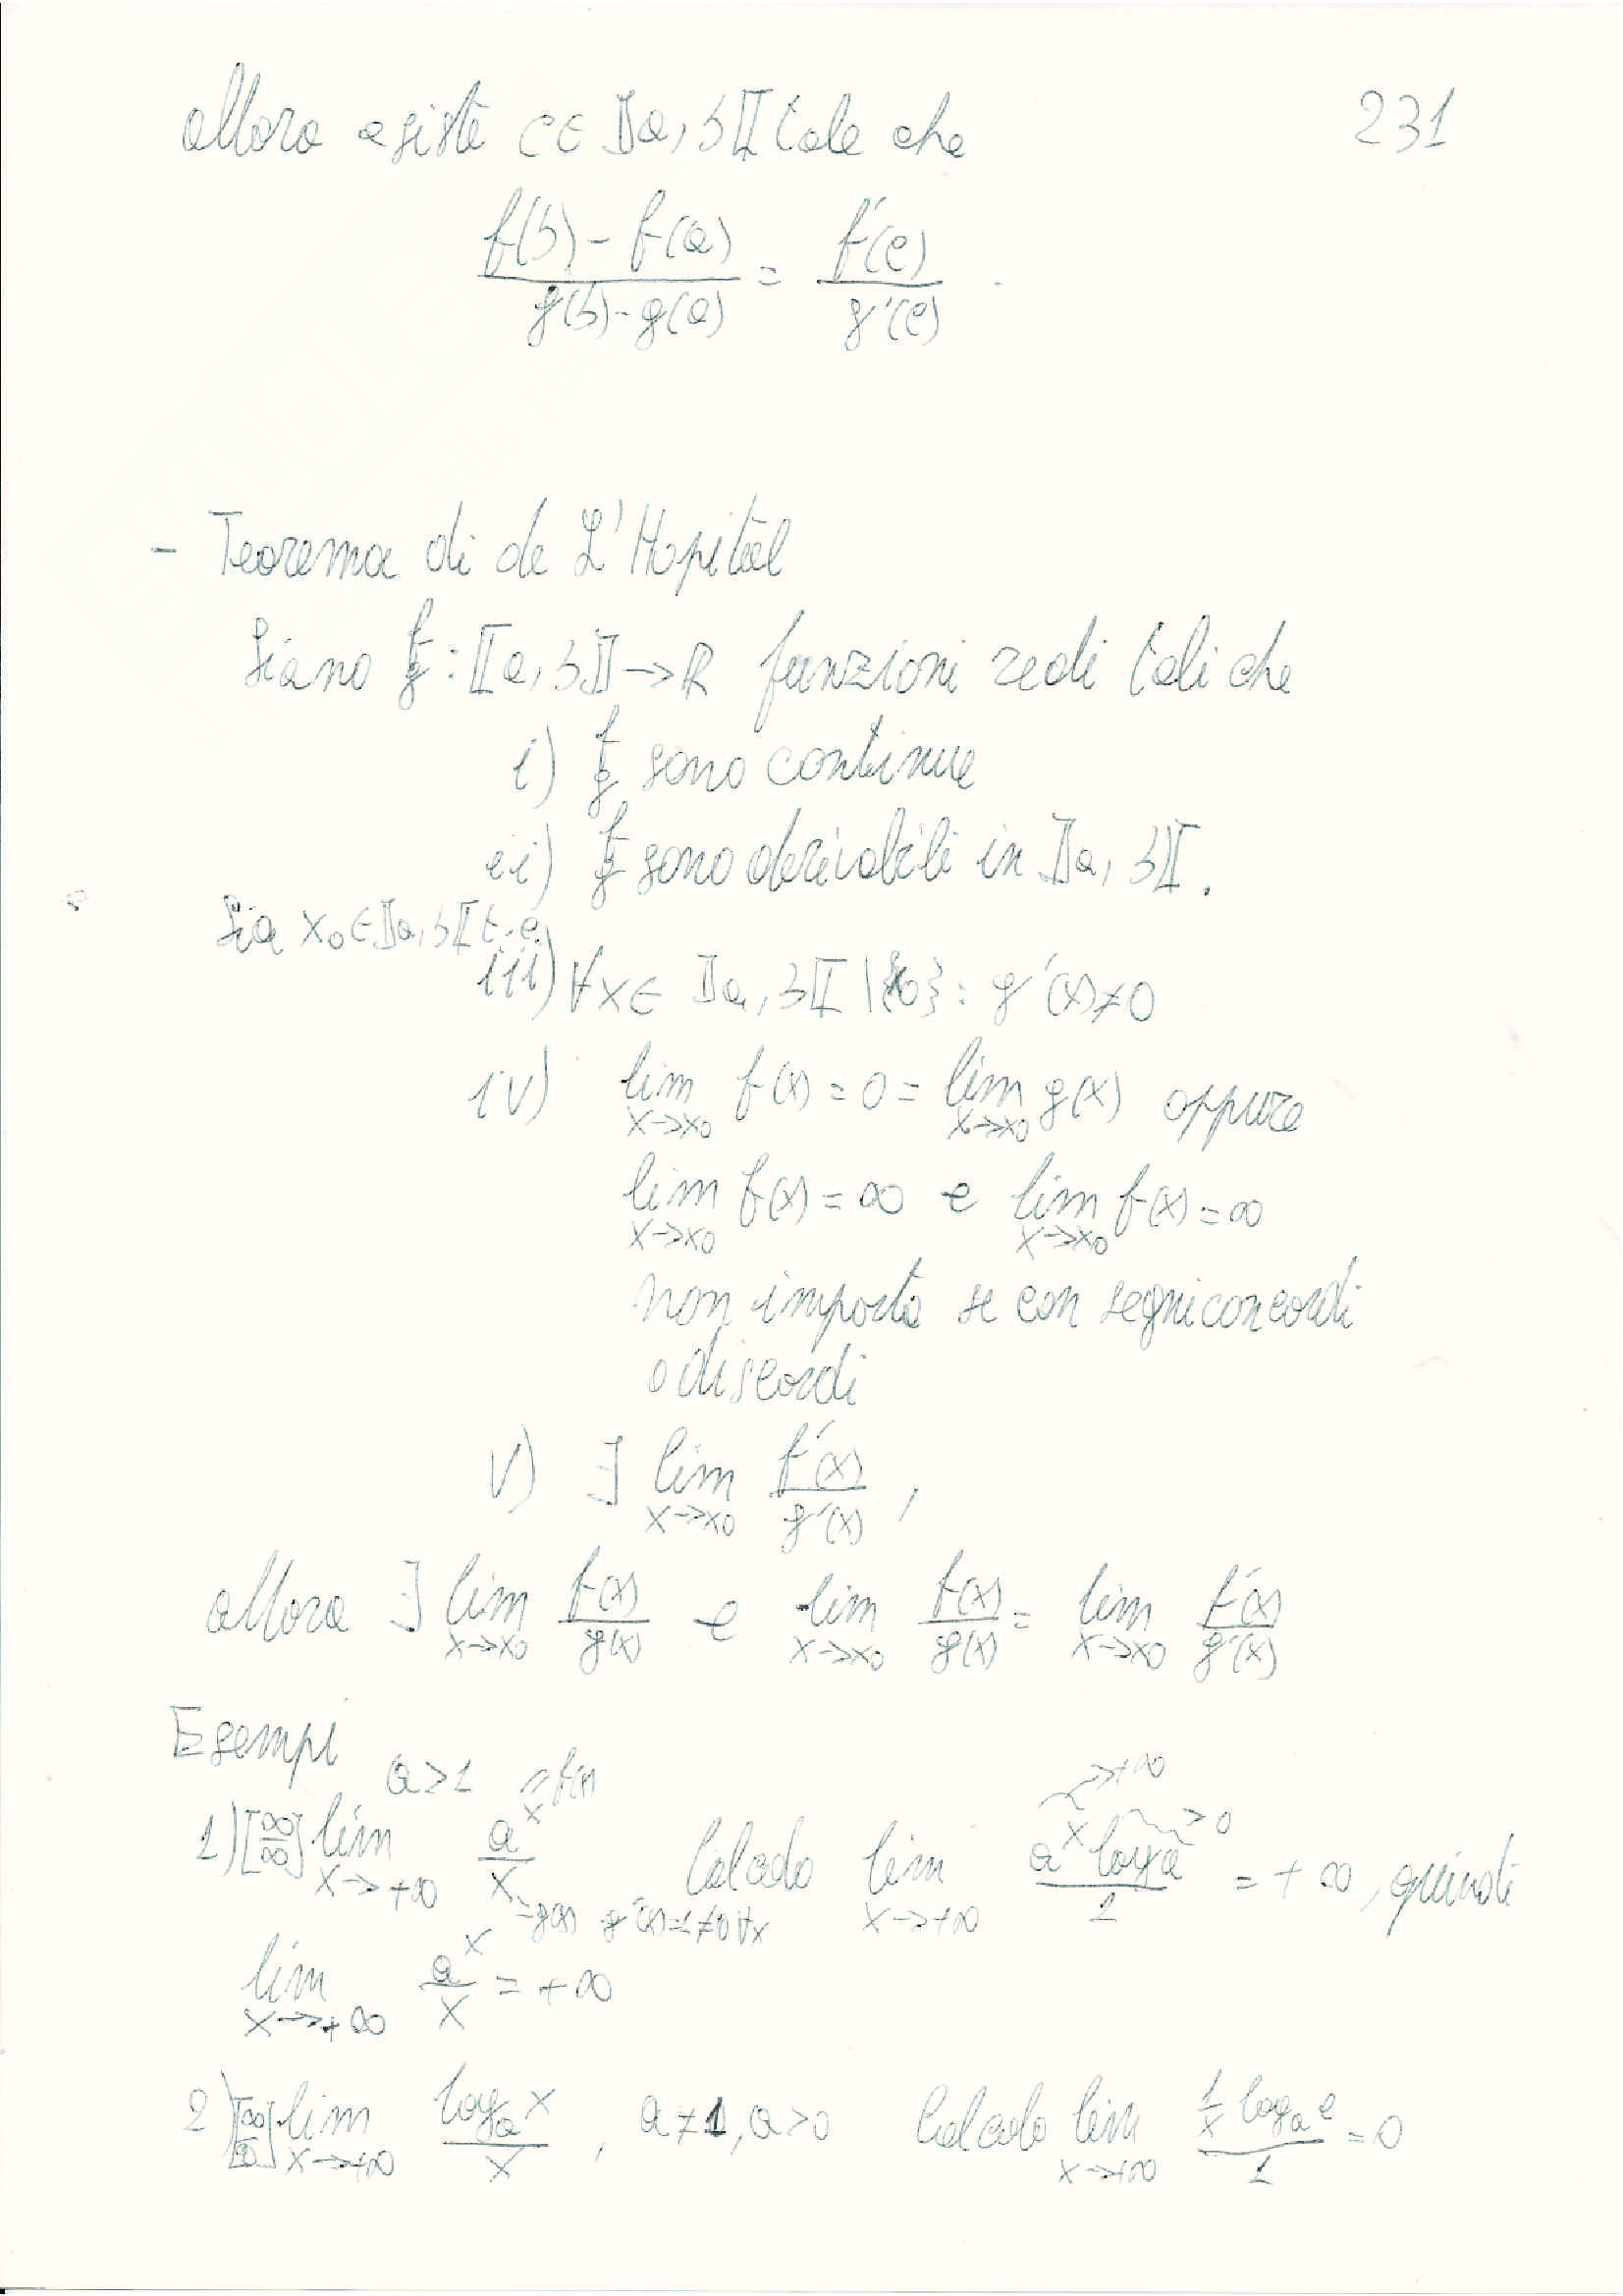 allora esiste c∈ ⟧a, b⟦ tale che 231
(f(b) - f(a))/(g(b) - g(a)) = f'(c)/g'(c) .
- Teorema di de L'Hopital
Siano f, g : ⟦a, b⟧ → ℝ funzioni reali tali che
i) f, g sono continue
ii) f, g sono derivabili in ⟧a, b⟦.
Sia x₀ ∈ ⟧a, b⟦ t.c.
iii) ∀x∈ ⟧a, b⟦ \ {x₀} : g'(x) ≠ 0
iv) lim x→x₀ f(x) = 0 = lim x→x₀ g(x) oppure
lim x→x₀ f(x) = ∞ e lim x→x₀ f(x) = ∞
non importa se con segni concordi
o discordi
v) ∃ lim x→x₀ f'(x)/g'(x) ,
allora ∃ lim x→x₀ f(x)/g(x) e lim x→x₀ f(x)/g(x) = lim x→x₀ f'(x)/g'(x)
Esempi
a>1 =f(x) →+∞
1) [∞/∞] lim x→+∞ aˣ/x Calcolo lim x→+∞ (aˣ log a)/1 = +∞, quindi >0
=g(x) g'(x)=1≠0 ∀x
lim x→+∞ aˣ/x = +∞
2) [∞/∞] lim x→+∞ (logₐ x)/x , a≠1, a>0 Calcolo lim x→+∞ (1/x logₐ e)/1 = 0